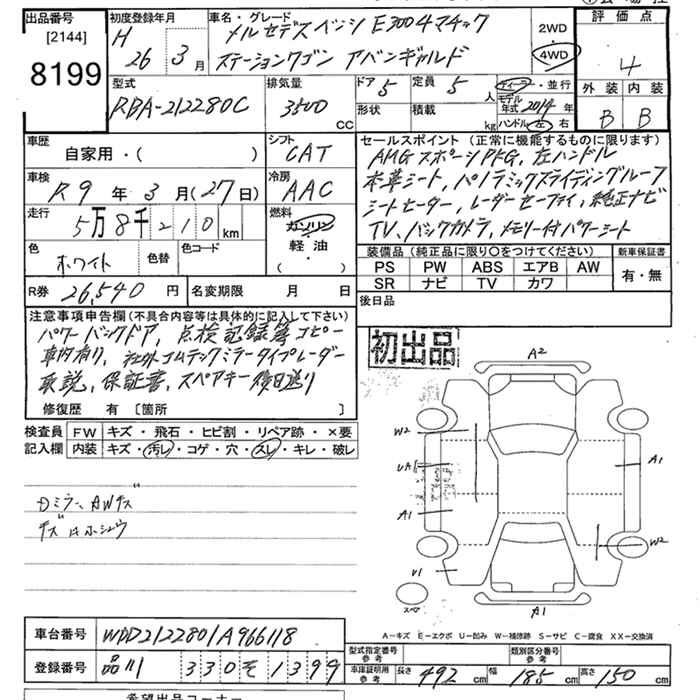 出品番号
[2144]
8199
初度登録年月
H
26 3 月
車名・グレード
メルセデスベンツ E300 4マチック
ステーションワゴン アバンギャルド
2WD
4WD
評価点
4
外装 内装
B B
型式
RBA-212280C
排気量
3500
CC
ドア 5
定員 5 人
形状
積載 kg
ディーラー・並行
モデル年式 2014 年
ハンドル 左 右
車歴
自家用・( )
シフト
CAT
車検
R9 年 3 月 (27 日)
冷房
AAC
走行
5万8千210km
燃料
ガソリン
軽油
( )
色
ホワイト
色替
色コード
R券 26,540 円
名変期限 月 日
セールスポイント(正常に機能するものに限ります)
AMGスポーツPKG, 左ハンドル
本革シート, パノラミックスライディングルーフ
シートヒーター, レーダーセーフティ, 純正ナビ
TV, バックカメラ, メモリー付パワーシート
装備品(純正品に限り〇をつけてください)
新車保証書
PS PW ABS エアB AW
SR ナビ TV カワ
有・無
後日品
注意事項申告欄(不具合内容等は具体的に記入して下さい)
パワーバックドア, 点検記録簿コピー
車内有り, 社外コムテックミラータイプレーダー
取説, 保証書, スペアキー後日送り
修復歴 有 〔箇所 〕
初出品
検査員
記入欄
FW キズ・飛石・ヒビ割・リペア跡・×要
内装 キズ・汚レ・コゲ・穴・スレ・キレ・破レ
Dミラー, AWキズ
キズ ホシュウ
A2
W2
UA1
A1
U1
A1
W2
A1
スペア
A-キズ E-エクボ U-凹み W-補修跡 S-サビ C-腐食 XX-交換済
車台番号 WDD2122801A966118
登録番号 品川 330そ1399
型式指定番号
参考
類別区分番号
参考
車庫証明用
参考
長さ 492 cm 幅 185 cm 高さ 150 cm
希望出品コーナー